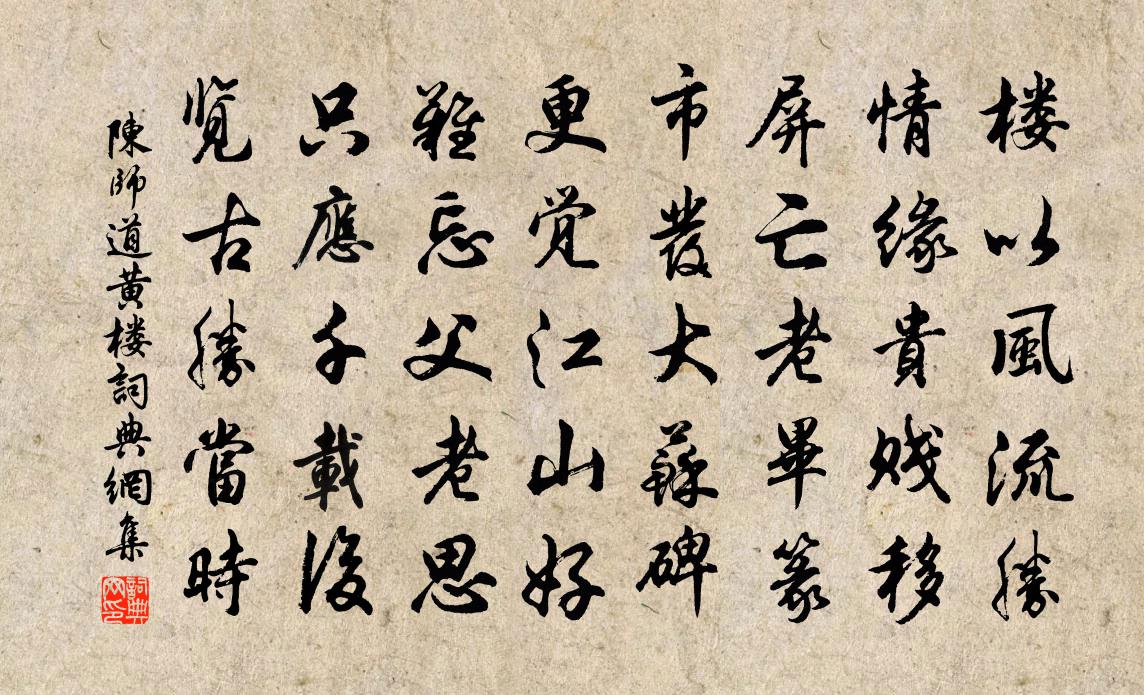 楼以風流勝
情緣貴賤移
屏亡老畢篆
市發大蘇碑
更覚江山好
難忘父老思
只應千載後
覽古勝當時
陳師道黄楼詞典網集
詞典網印